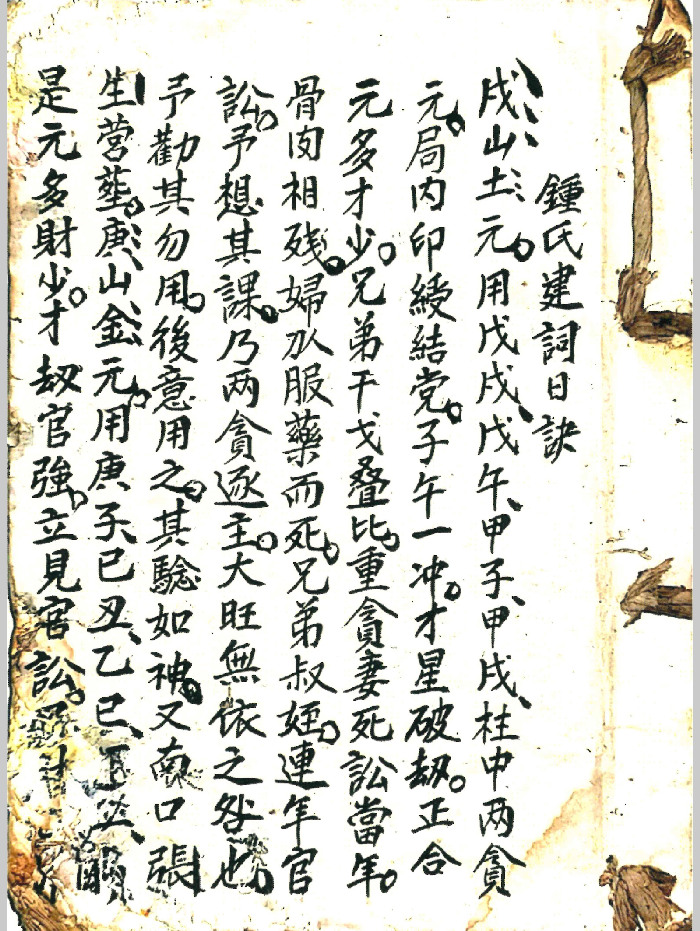 鍾氏建詞日訣
戍山土元。用戊戍、戊午、甲子、甲戍、柱中两貪
元。局内印綬結党。子午一冲。才星破刼。正合
元多才少。兄弟干戈叠比。重貪妻死訟當年。
骨肉相残。婦以服藥而死。兄弟叔姪。連年官
訟。予想其課。乃两貪逐主。大旺無依之咎也。
予勸其勿用。後意用之。其騐如神。又南口張
生营塟。庚山金元。用庚子、己丑、乙巳、
是元多財少。才刼官強。立見官訟。